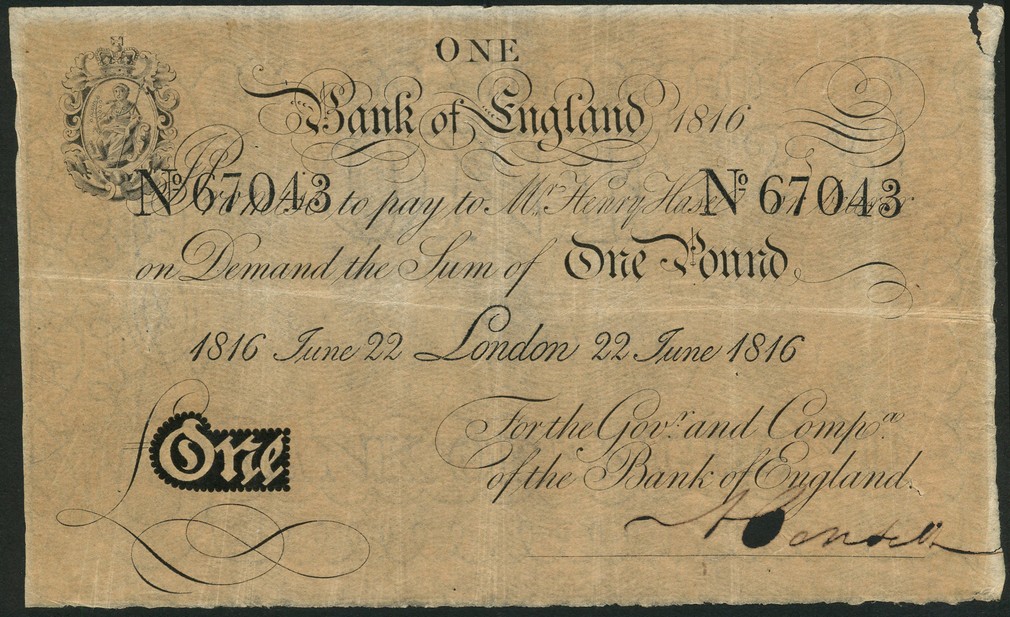 ONE
Bank of England 1816
No 67043 No 67043
I Promise to pay to Mr. Henry Hase
on Demand the Sum of One Pound
1816 June 22 London 22 June 1816
£ One
For the Govr. and Compa.
of the Bank of England.